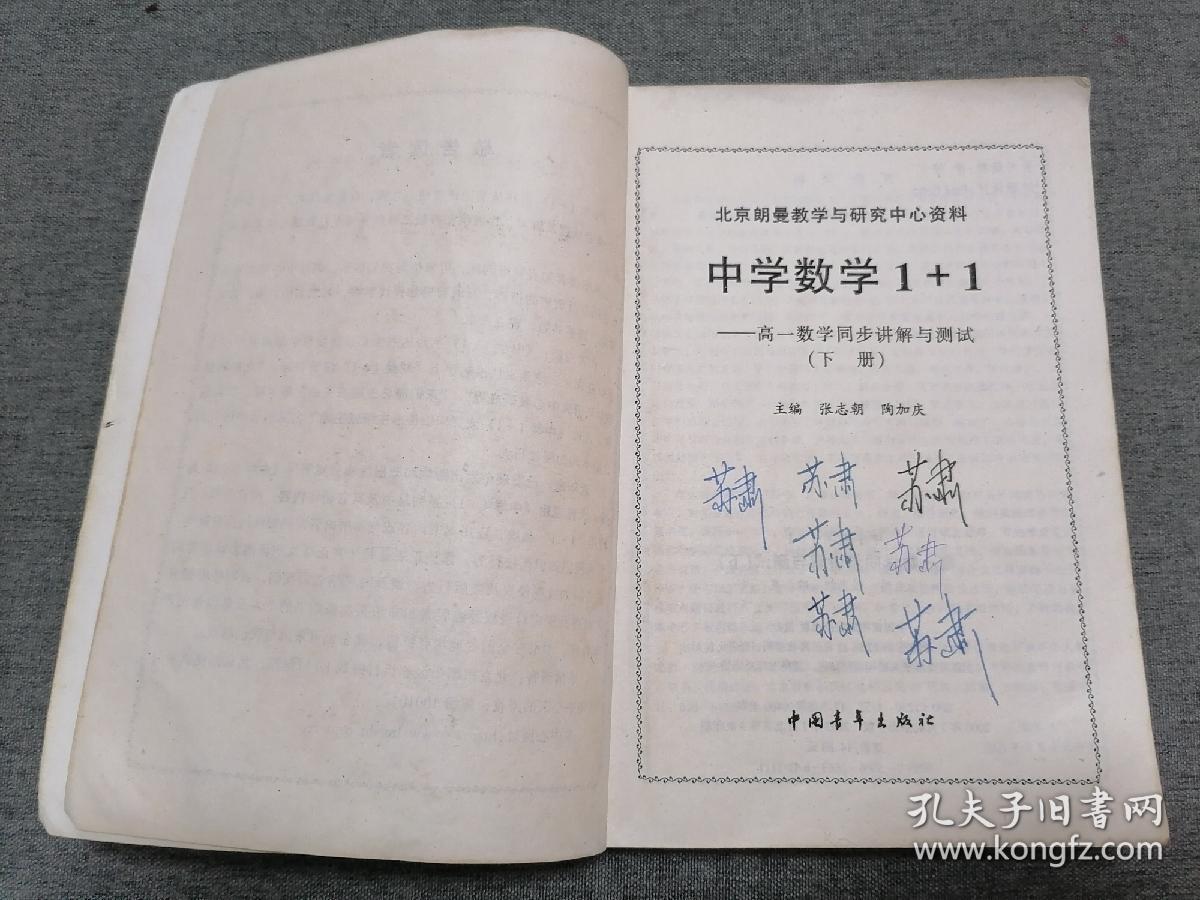 北京朗曼教学与研究中心资料
中学数学1+1
——高一数学同步讲解与测试
(下 册)
主编 张志朝 陶加庆
苏肃 苏肃 苏肃
苏肃 苏肃
苏肃 苏肃
中国青年出版社
孔夫子旧书网
www.kongfz.com